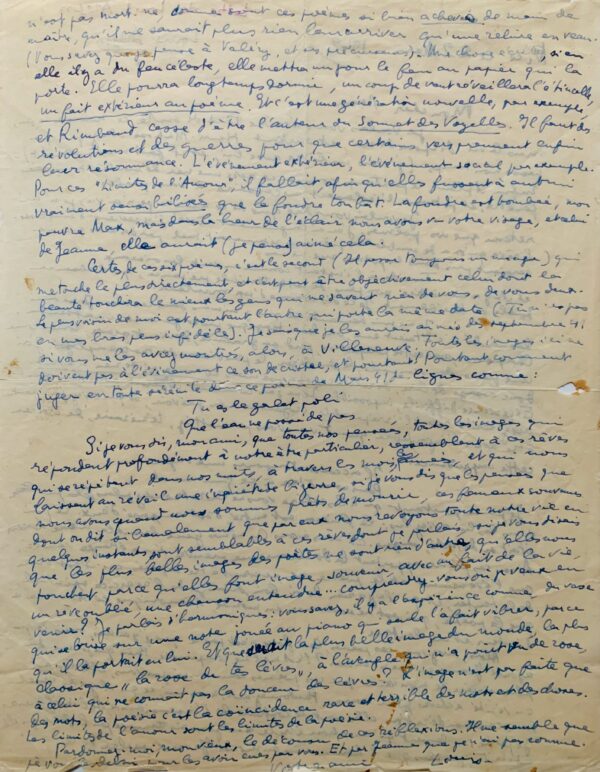 n'est pas mort ne donnent ces poèmes si bien achevés de main de
maître, qu'il ne saurait plus rien leur arriver qu'une reliure en veau.
(Vous savez que je pense à Valéry, et ses ). Une chose , si en
elle il y a du feu céleste, elle mettra un jour le feu au papier qui la
porte. Elle pourra longtemps dormir, un coup de vent réveillera l'étincelle,
un fait extérieur au poème. Et c'est une génération nouvelle, par exemple,
et Rimbaud cesse d'être l'auteur du Sonnet des Voyelles. Il faut des
révolutions et des guerres pour que certains vers prennent enfin
leur résonnance. L'événement extérieur, l'événement social par exemple.
Pour ces "Limites de l'Amour", il fallait, afin qu'elles fussent à autrui
vraiment sensibilisées que la foudre tombât. La foudre est tombée, mon
pauvre Max, mais dans la lueur de l'éclair nous avons vu votre visage, et celui
de Jeanne, elle aurait (je pense) aimé cela.
Certes, de ces six poèmes, c'est le second (Il passe toujours un nuage) qui
me touche le plus directement, et c'est peut-être objectivement celui dont la
beauté touchera le mieux les gens qui ne savent rien de vous, de vous deux.
Le plus voisin de moi est pourtant l'autre, qui porte la même date (Tu n'es pas
en mes bras plus infidèle). Je sais que je les aurais aimés dès septembre 41
si vous me les aviez montrés, alors, à Villeneuve. Toutes les images ici ne
doivent pas à l'événement ce son de cristal, et pourtant! Pourtant comment
juger en toute sérénité dans ce poème de Mars 41 de lignes comme:
Tu es le galet poli
Que l'eau ne possède pas
Si je vous dis, mon ami, que toutes nos pensées, toutes les images qui
répondent profondément à notre être particulier, ressemblent à ces rêves
qui se répètent dans nos nuits, à travers les mois, les années, et qui nous
laissent au réveil une inquiétude bizarre, si je vous dis que les pensées que
nous avons quand nous sommes prêts de mourir, ces fameux souvenirs
dont on dit si banalement que par eux nous revoyons toute notre vie en
quelques instants sont semblables à ces rêves dont je parlais, si je vous disais
que les plus belles images des poètes ne sont rien d'autre, qu'elles nous
touchent parce qu'elles font image, souvenir avec un fait de la vie,
un rêve oublié, une chanson entendue... comprendrez-vous où je veux en
venir? Je parlais d'harmoniques: vous savez, il y a l'expérience comme du vase
qui se brise sur une note jouée au piano qui seule l'a fait vibrer, parce
qu'il la portait en lui. Et que serait la plus belle image du monde, la plus
classique "la rose de tes lèvres", à l'aveugle qui n'a point vu de rose,
à celui qui ne connaît pas la douceur des lèvres? L'image n'est pas faite que
des mots, la poésie c'est la coïncidence rare et terrible des mots et des choses.
Les limites de l'amour sont les limites de la poésie.
Pardonnez-moi, mon vieux, le décousu de ces réflexions. Il me semble que
je vous les avoir vous. Et par Jeanne que je n'ai pas connue.
Votre ami Louis